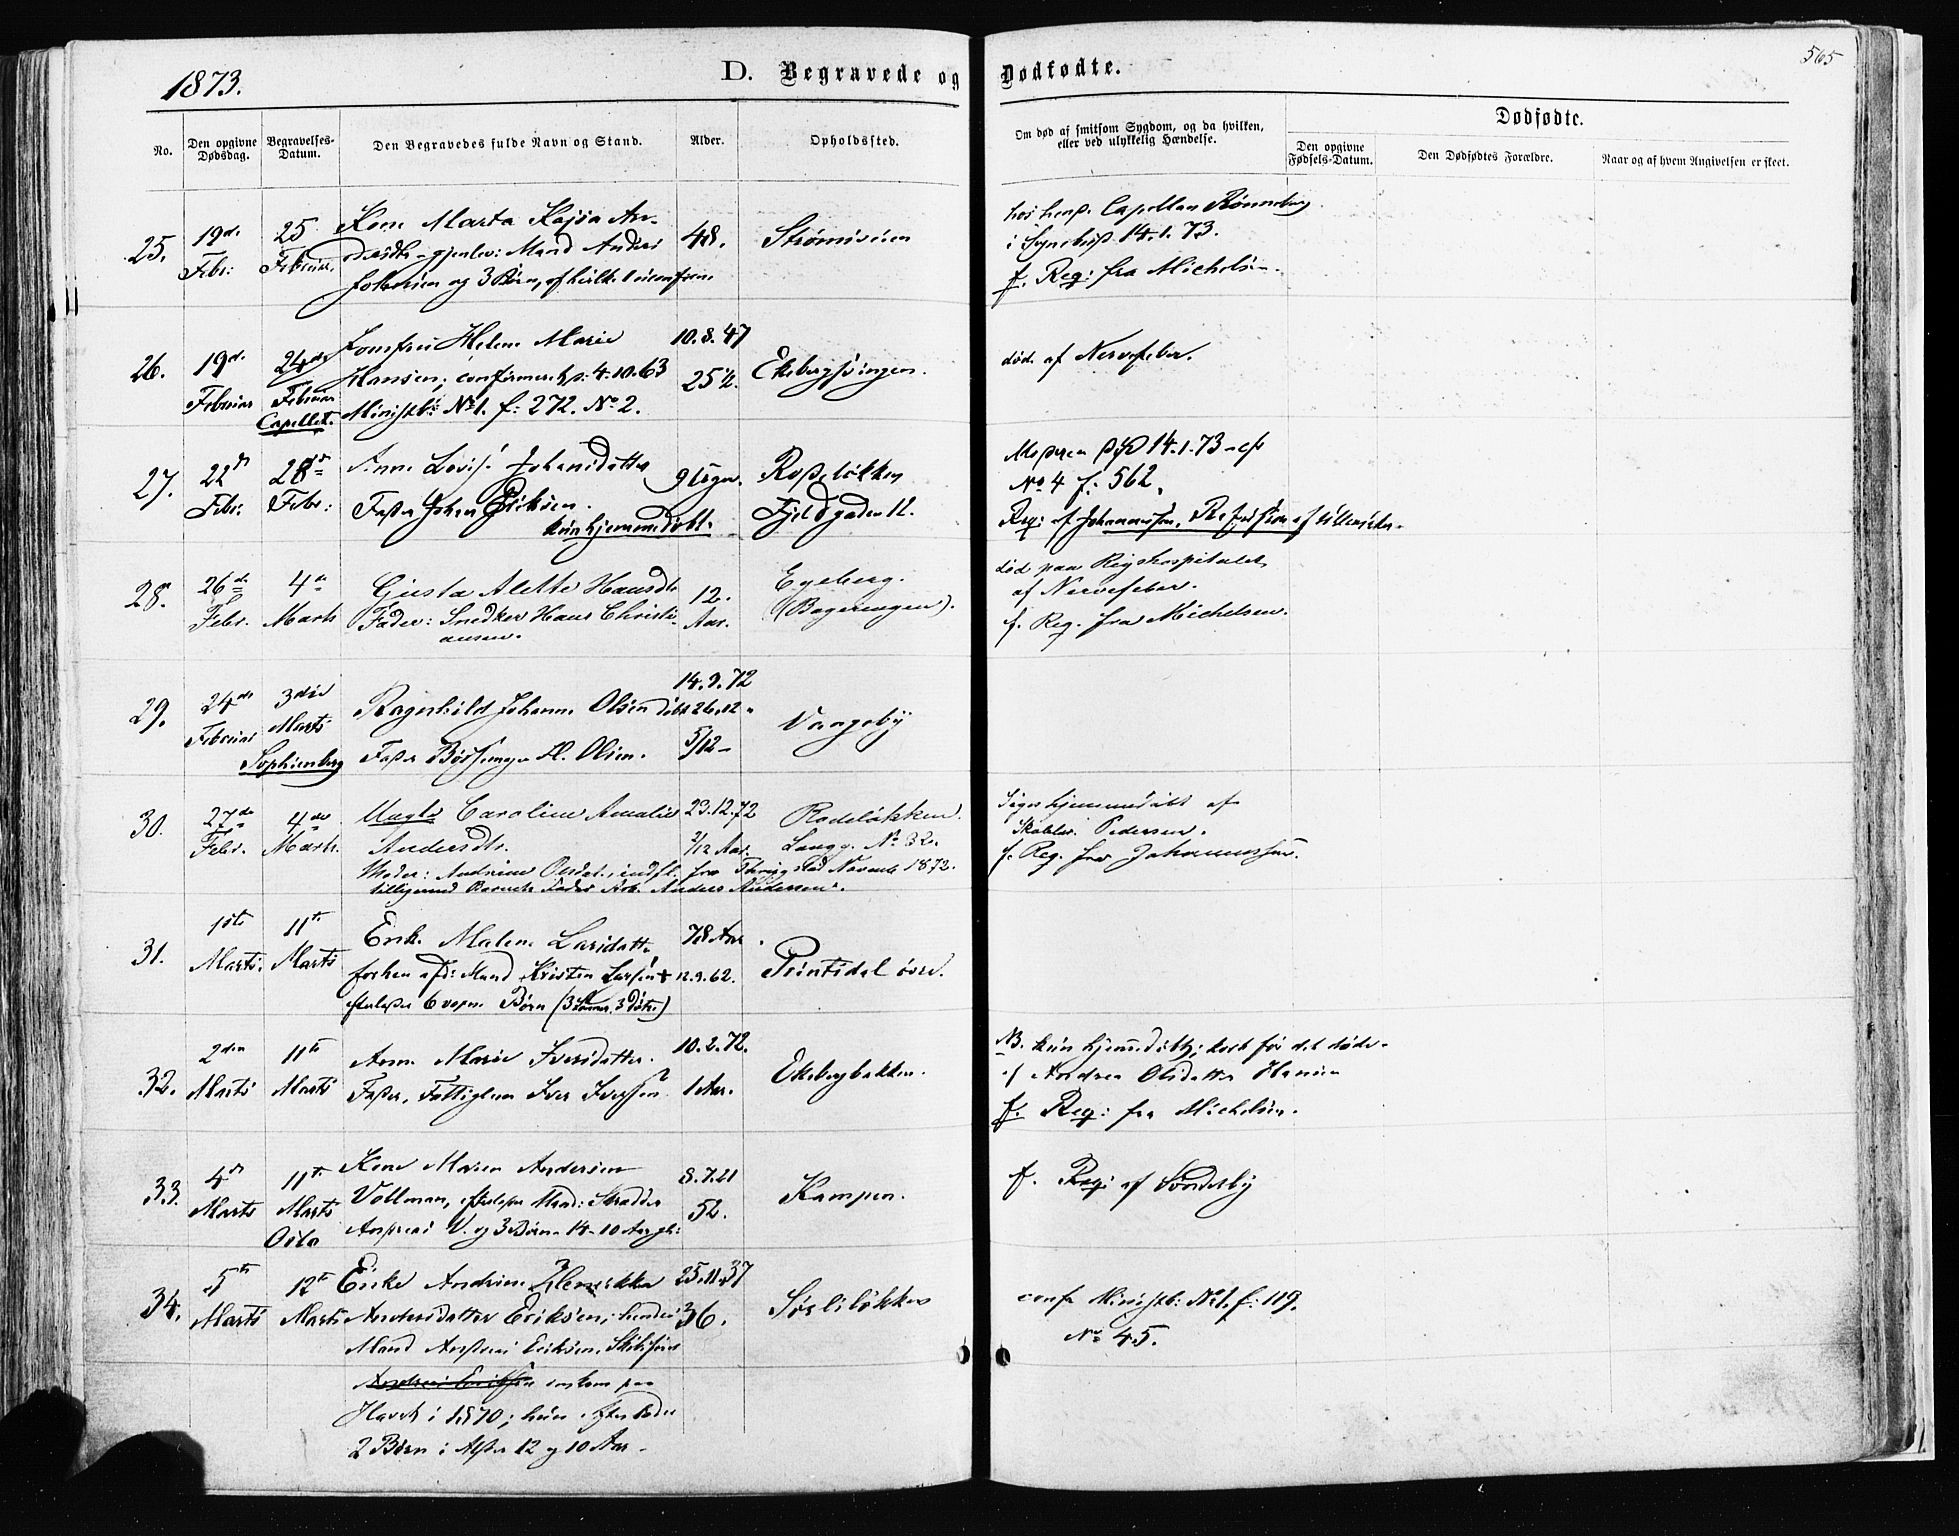 1873.
D. Begravede og Dødfødte.
565
No.
Den opgivne Dødsdag.
Begravelses-Datum.
Den Begravedes fulde Navn og Stand.
Alder.
Opholdssted.
Om død af smitsom Sygdom, og da hvilken, eller ved ulykkelig Hændelse.
Dødfødte.
Den opgivne Fødsels-Datum.
Den Dødfødtes Forældre.
Naar og af hvem Angivelsen er skeet.
25.
19de Febr:
25 Februar.
Kone Marta Kajsa An-
dersdtr. gjenlev: Mand Anders
og 3 Børn, af hvilke 1 uconfirm.
48.
Strømsveien
Capellan Rønneberg
14.1.73.
f. Reg: fra Michels
26.
19de Februar
24de Februar
Capellet.
Jomfru Helene Marie
Hansen; confirmeret 4.10.63
Ministb: No 1. f: 272. No 2.
10.8.47
25½.
Ekebergsvingen.
død af Nervefeber.
27.
22de Febr.
28de Febr:
Anne Lovise Johansdatter
Fader Johan Eriksen.
kun hjemmedøbt.
9 Uger.
Rodeløkken
Fjeldgaden 11.
14.1.73
No 4 f: 562.
Reg: af Johannessen.
28.
26de Febr.
4de Marts
Gusta Alette Hansdtr.
Fader: Snedker Hans Christi-
ansen.
12.
Aar.
Egeberg.
død paa Rigshospitalet
af Nervefeber.
f. Reg. fra Michelsen.
29.
24de Februar
3die Marts
Sophienberg
Ragnhild Johanne Olsen døbt 26.12
Fader Bøssemager H. Olsen.
14.9.72
5/12
Vaagebÿ
30.
27de Febr.
4de Marts.
Uægte Caroline Amalie
Andersdtr.
Moder: Andrine Olsdtr. indfl. fra Novemb 1872.
tillige med Barnets Fader Arb. Anders Andersen.
23.12.72
2/12 Aar.
Rodeløkken.
Langg. No 32.
Siges hjemmedøbt af
Pedersen.
f. Reg. fra Johannessen.
31.
1ste Marts.
11te Marts
Enke Malene Larsdatter,
forhen afd: Mand Kristen Larsen + 12.9.62.
efterlader 6 voxne Børn (3 Sønner, 3 Døtre)
78 Aar.
32.
2den Marts
11te Marts
Anne Marie Iversdatter.
Fader, Fattiglem Iver Iversen
10.2.72.
1 Aar.
Ekebergbakken.
NB. kun hjemmedøbt; kort før det døde
af Andrea Olsdatter Hansen
f. Reg: fra Michelsen.
33.
4de Marts
11te Marts
Oslo
Kone Maren Andersen
Vollman, efterlader Mand: Skrædder
Andreas V. og 3 Børn 14–10 Aar gl:
8.7.21
52.
Kampen.
f. Reg: af Sønderby
34.
5te Marts
12te Marts
Enke Andrine Henrikka
Andersdatter Eriksen; hendes
Mand Andreas Eriksen, Skibsfører
Andreas Eriksen omkom paa
Havet i 1870; hun efterlader
2 Børn i Alder 12 og 10 Aar.
25.11.37
36.
Sørliløkken
conf. Ministb: No 1. f: 119.
No 45.